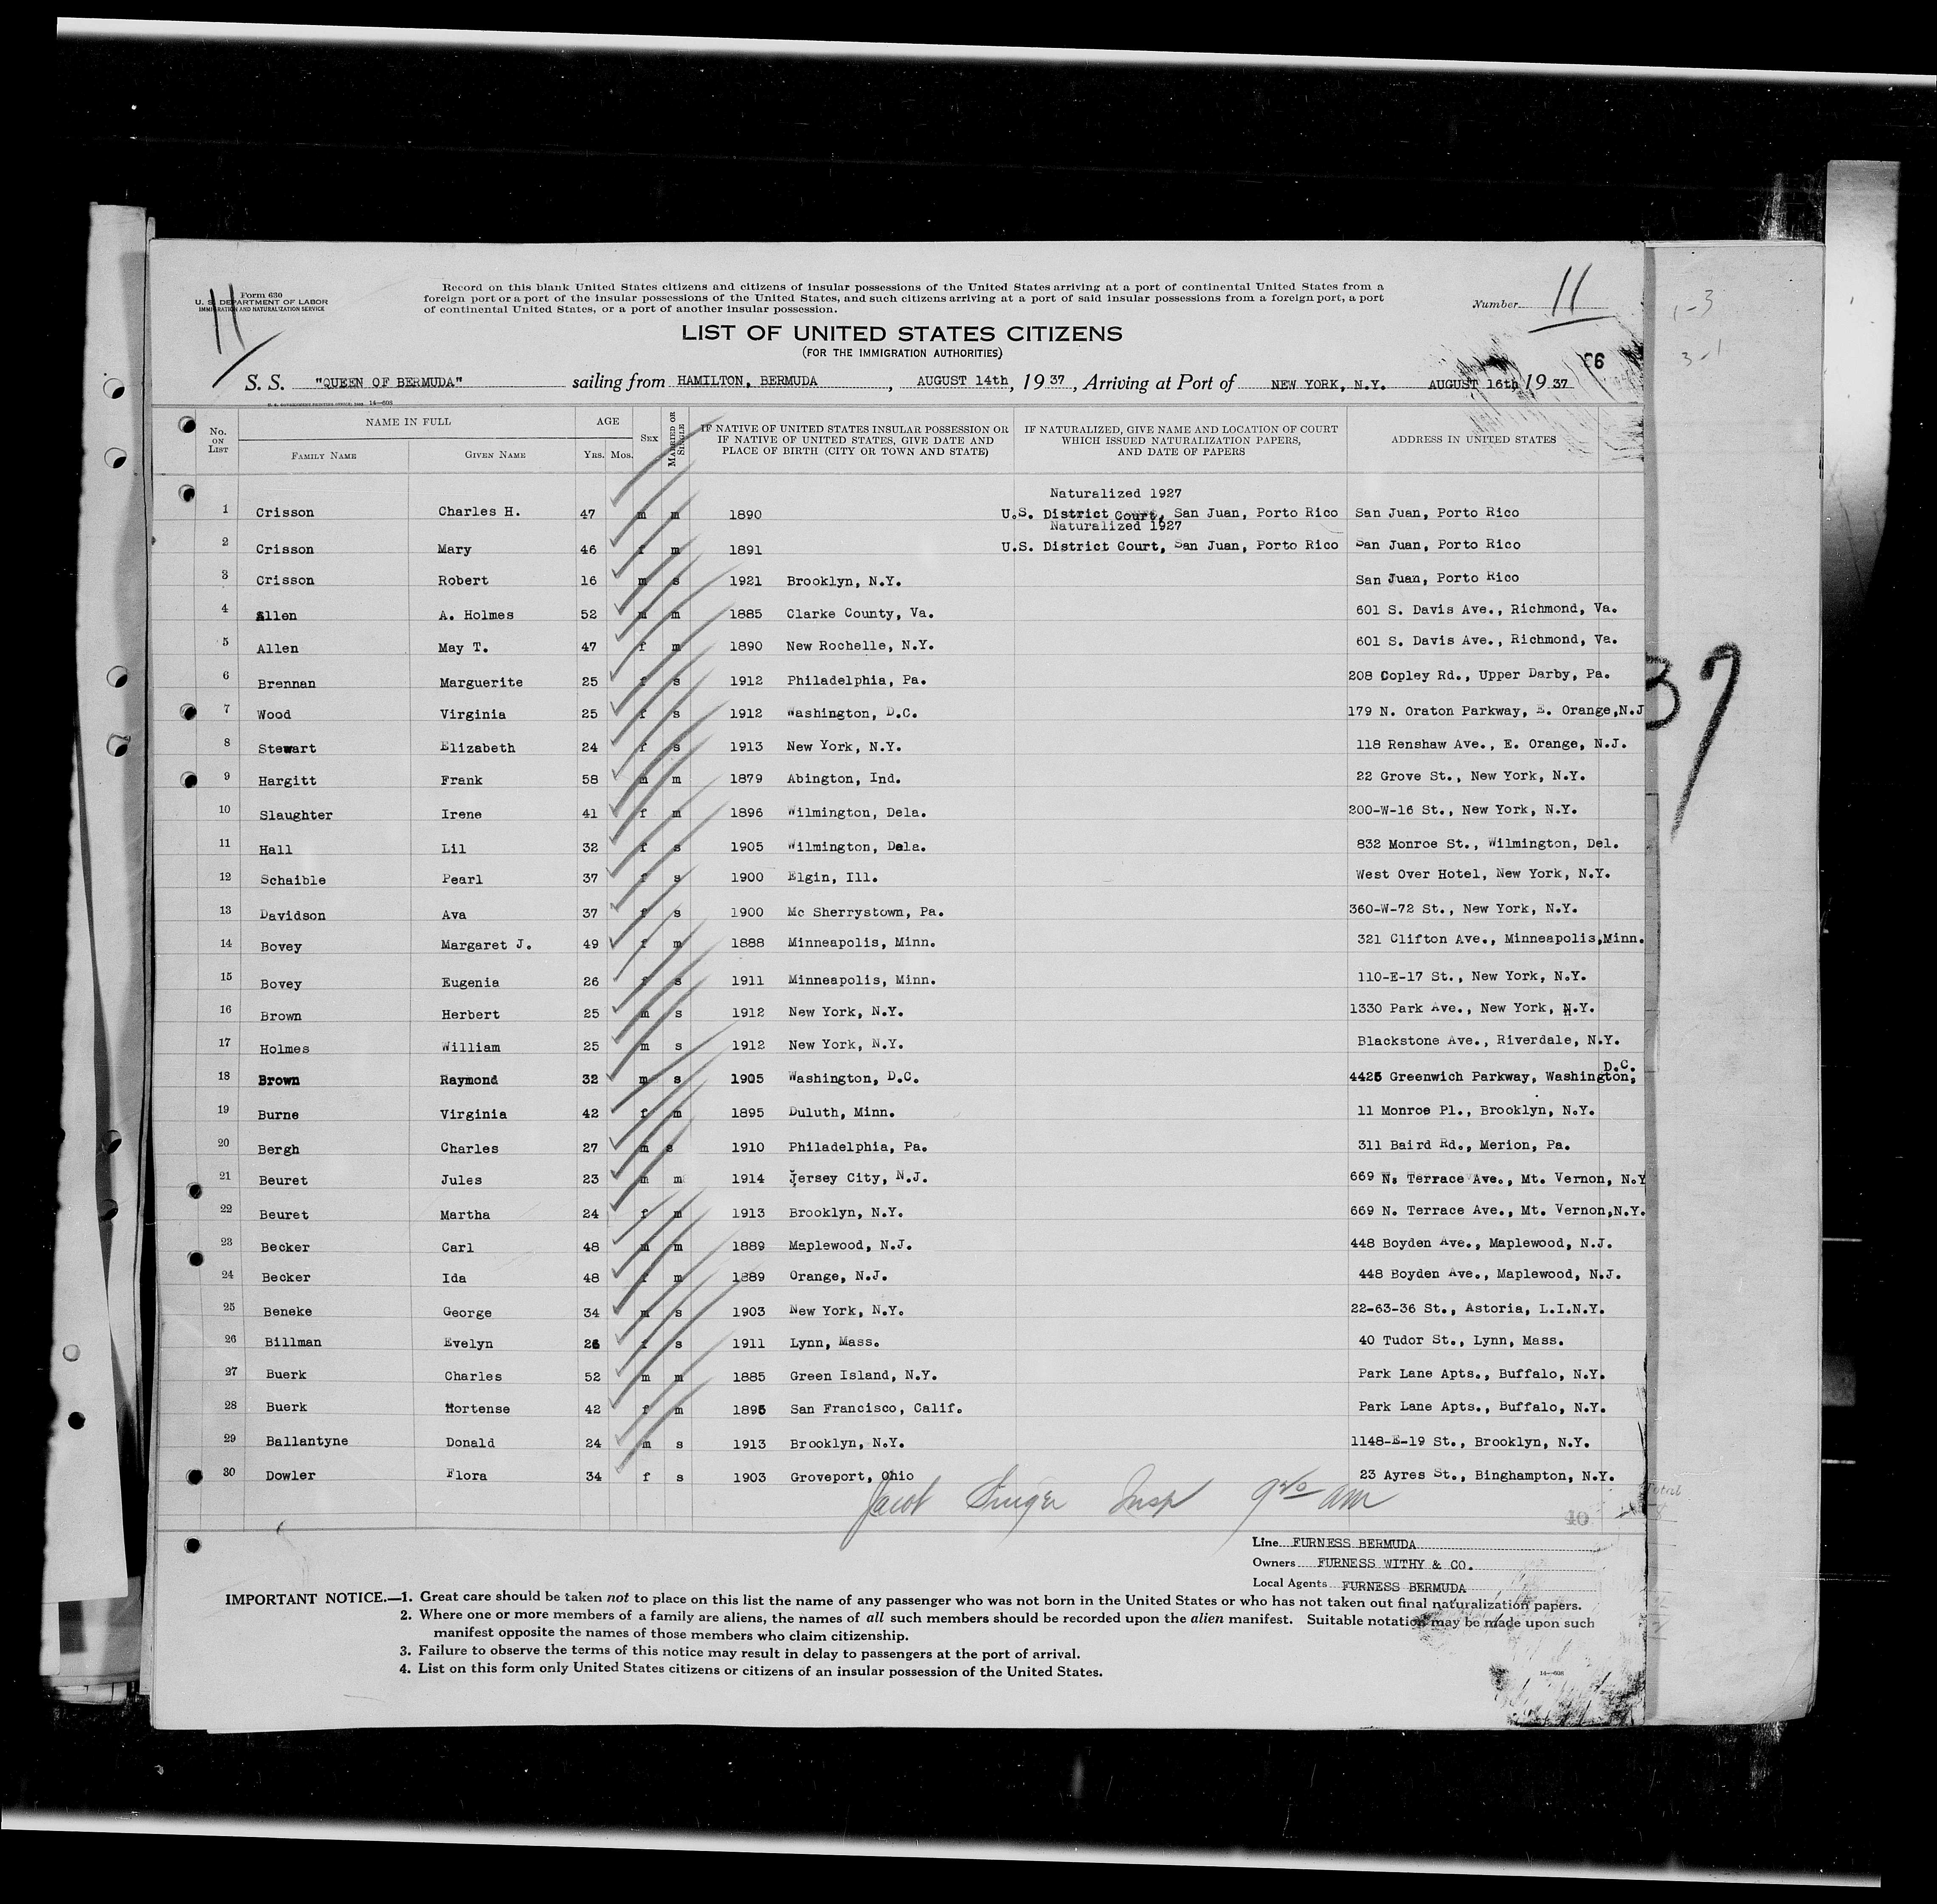 Form 630
U. S. DEPARTMENT OF LABOR
IMMIGRATION AND NATURALIZATION SERVICE
11
Record on this blank United States citizens and citizens of insular possessions of the United States arriving at a port of continental United States from a
foreign port or a port of the insular possessions of the United States, and such citizens arriving at a port of said insular possessions from a foreign port, a port
of continental United States, or a port of another insular possession.
Number 11
1-3
3-1
LIST OF UNITED STATES CITIZENS
(FOR THE IMMIGRATION AUTHORITIES)
6
S. S. "QUEEN OF BERMUDA" sailing from HAMILTON, BERMUDA, AUGUST 14th, 1937, Arriving at Port of NEW YORK, N.Y. AUGUST 16th 1937
No. ON LIST NAME IN FULL AGE SEX MARRIED OR SINGLE IF NATIVE OF UNITED STATES INSULAR POSSESSION OR IF NATIVE OF UNITED STATES, GIVE DATE AND PLACE OF BIRTH (CITY OR TOWN AND STATE) IF NATURALIZED, GIVE NAME AND LOCATION OF COURT WHICH ISSUED NATURALIZATION PAPERS, AND DATE OF PAPERS ADDRESS IN UNITED STATES
FAMILY NAME GIVEN NAME YRS. MOS.
Naturalized 1927
1 Crisson Charles H. 47 m m 1890 U.S. District Court, San Juan, Porto Rico San Juan, Porto Rico
Naturalized 1927
2 Crisson Mary 46 f m 1891 U.S. District Court, San Juan, Porto Rico San Juan, Porto Rico
3 Crisson Robert 16 m s 1921 Brooklyn, N.Y. San Juan, Porto Rico
4 Allen A. Holmes 52 m m 1885 Clarke County, Va. 601 S. Davis Ave., Richmond, Va.
5 Allen May T. 47 f m 1890 New Rochelle, N.Y. 601 S. Davis Ave., Richmond, Va.
6 Brennan Marguerite 25 f s 1912 Philadelphia, Pa. 208 Copley Rd., Upper Darby, Pa.
7 Wood Virginia 25 f s 1912 Washington, D.C. 179 N. Oraton Parkway, E. Orange,N.J
37
8 Stewart Elizabeth 24 f s 1913 New York, N.Y. 118 Renshaw Ave., E. Orange, N.J.
9 Hargitt Frank 58 m m 1879 Abington, Ind. 22 Grove St., New York, N.Y.
10 Slaughter Irene 41 f m 1896 Wilmington, Dela. 200-W-16 St., New York, N.Y.
11 Hall Lil 32 f s 1905 Wilmington, Dela. 832 Monroe St., Wilmington, Del.
12 Schaible Pearl 37 f s 1900 Elgin, Ill. West Over Hotel, New York, N.Y.
13 Davidson Ava 37 f s 1900 Mc Sherrystown, Pa. 360-W-72 St., New York, N.Y.
14 Bovey Margaret J. 49 f m 1888 Minneapolis, Minn. 321 Clifton Ave., Minneapolis,Minn.
15 Bovey Eugenia 26 f s 1911 Minneapolis, Minn. 110-E-17 St., New York, N.Y.
16 Brown Herbert 25 m s 1912 New York, N.Y. 1330 Park Ave., New York, N.Y.
17 Holmes William 25 m s 1912 New York, N.Y. Blackstone Ave., Riverdale, N.Y.
18 Brown Raymond 32 m s 1905 Washington, D.C. 4425 Greenwich Parkway, Washington, D.C.
19 Burne Virginia 42 f m 1895 Duluth, Minn. 11 Monroe Pl., Brooklyn, N.Y.
20 Bergh Charles 27 m s 1910 Philadelphia, Pa. 311 Baird Rd., Merion, Pa.
21 Beuret Jules 23 m m 1914 Jersey City, N.J. 669 N. Terrace Ave., Mt. Vernon, N.Y
22 Beuret Martha 24 f m 1913 Brooklyn, N.Y. 669 N. Terrace Ave., Mt. Vernon,N.Y.
23 Becker Carl 48 m m 1889 Maplewood, N.J. 448 Boyden Ave., Maplewood, N.J.
24 Becker Ida 48 f m 1889 Orange, N.J. 448 Boyden Ave., Maplewood, N.J.
25 Beneke George 34 m s 1903 New York, N.Y. 22-63-36 St., Astoria, L.I.N.Y.
26 Billman Evelyn 26 f s 1911 Lynn, Mass. 40 Tudor St., Lynn, Mass.
27 Buerk Charles 52 m m 1885 Green Island, N.Y. Park Lane Apts., Buffalo, N.Y.
28 Buerk Hortense 42 f m 1895 San Francisco, Calif. Park Lane Apts., Buffalo, N.Y.
29 Ballantyne Donald 24 m s 1913 Brooklyn, N.Y. 1148-E-19 St., Brooklyn, N.Y.
30 Dowler Flora 34 f s 1903 Groveport, Ohio 23 Ayres St., Binghampton, N.Y.
Jacob Singer Insp am
40
Line FURNESS BERMUDA
Owners FURNESS WITHY & CO.
Local Agents FURNESS BERMUDA
IMPORTANT NOTICE.—1. Great care should be taken not to place on this list the name of any passenger who was not born in the United States or who has not taken out final naturalization papers.
2. Where one or more members of a family are aliens, the names of all such members should be recorded upon the alien manifest. Suitable notation may be made upon such
manifest opposite the names of those members who claim citizenship.
3. Failure to observe the terms of this notice may result in delay to passengers at the port of arrival.
4. List on this form only United States citizens or citizens of an insular possession of the United States.
14—608